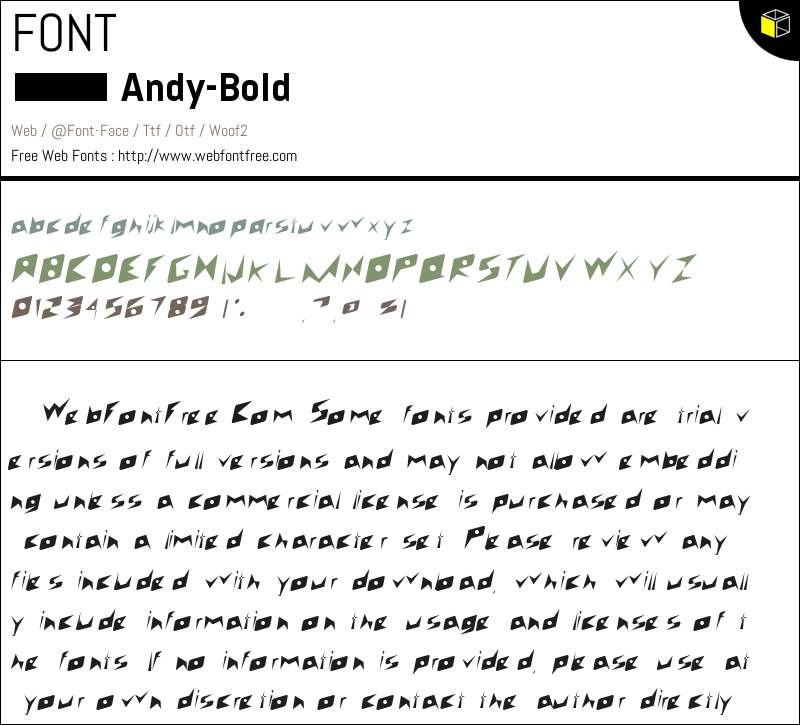 FONT
Andy-Bold
Web / @Font-Face / Ttf / Otf / Woof2
Free Web Fonts : http://www.webfontfree.com
abcdefghijklmnopqrstuvwxyz
ABCDEFGHIJKLMNOPQRSTUVWXYZ
0123456789
WebFontFree Com Some fonts provided are trial v
ersions of full versions and may not allow embeddi
ng unless a commercial license is purchased or may
contain a limited character set Please review any
files included with your download, which will usuall
y include information on the usage and licenses of t
he fonts If no information is provided, please use at
your own discretion or contact the author directly